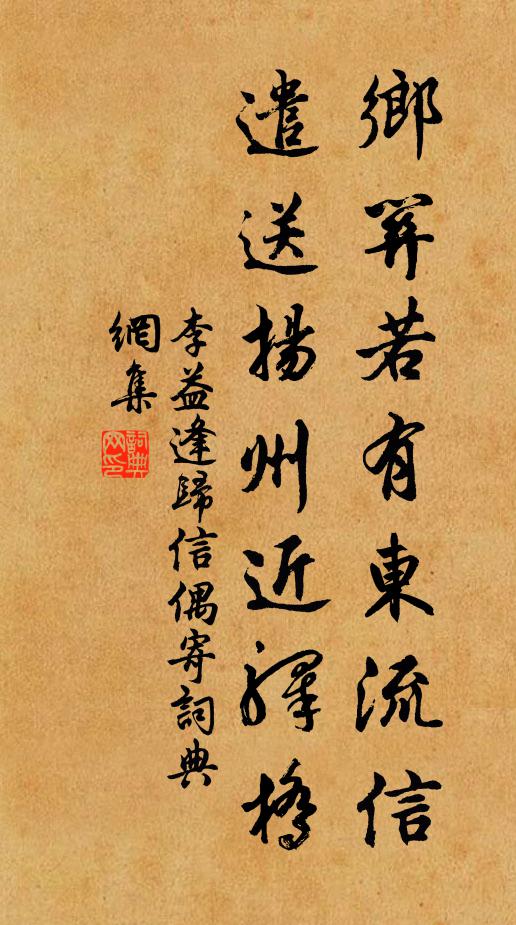 鄉關若有東流信
遣送揚州近驛橋
李益逢歸信偶寄詞典
網集
詞典
网印